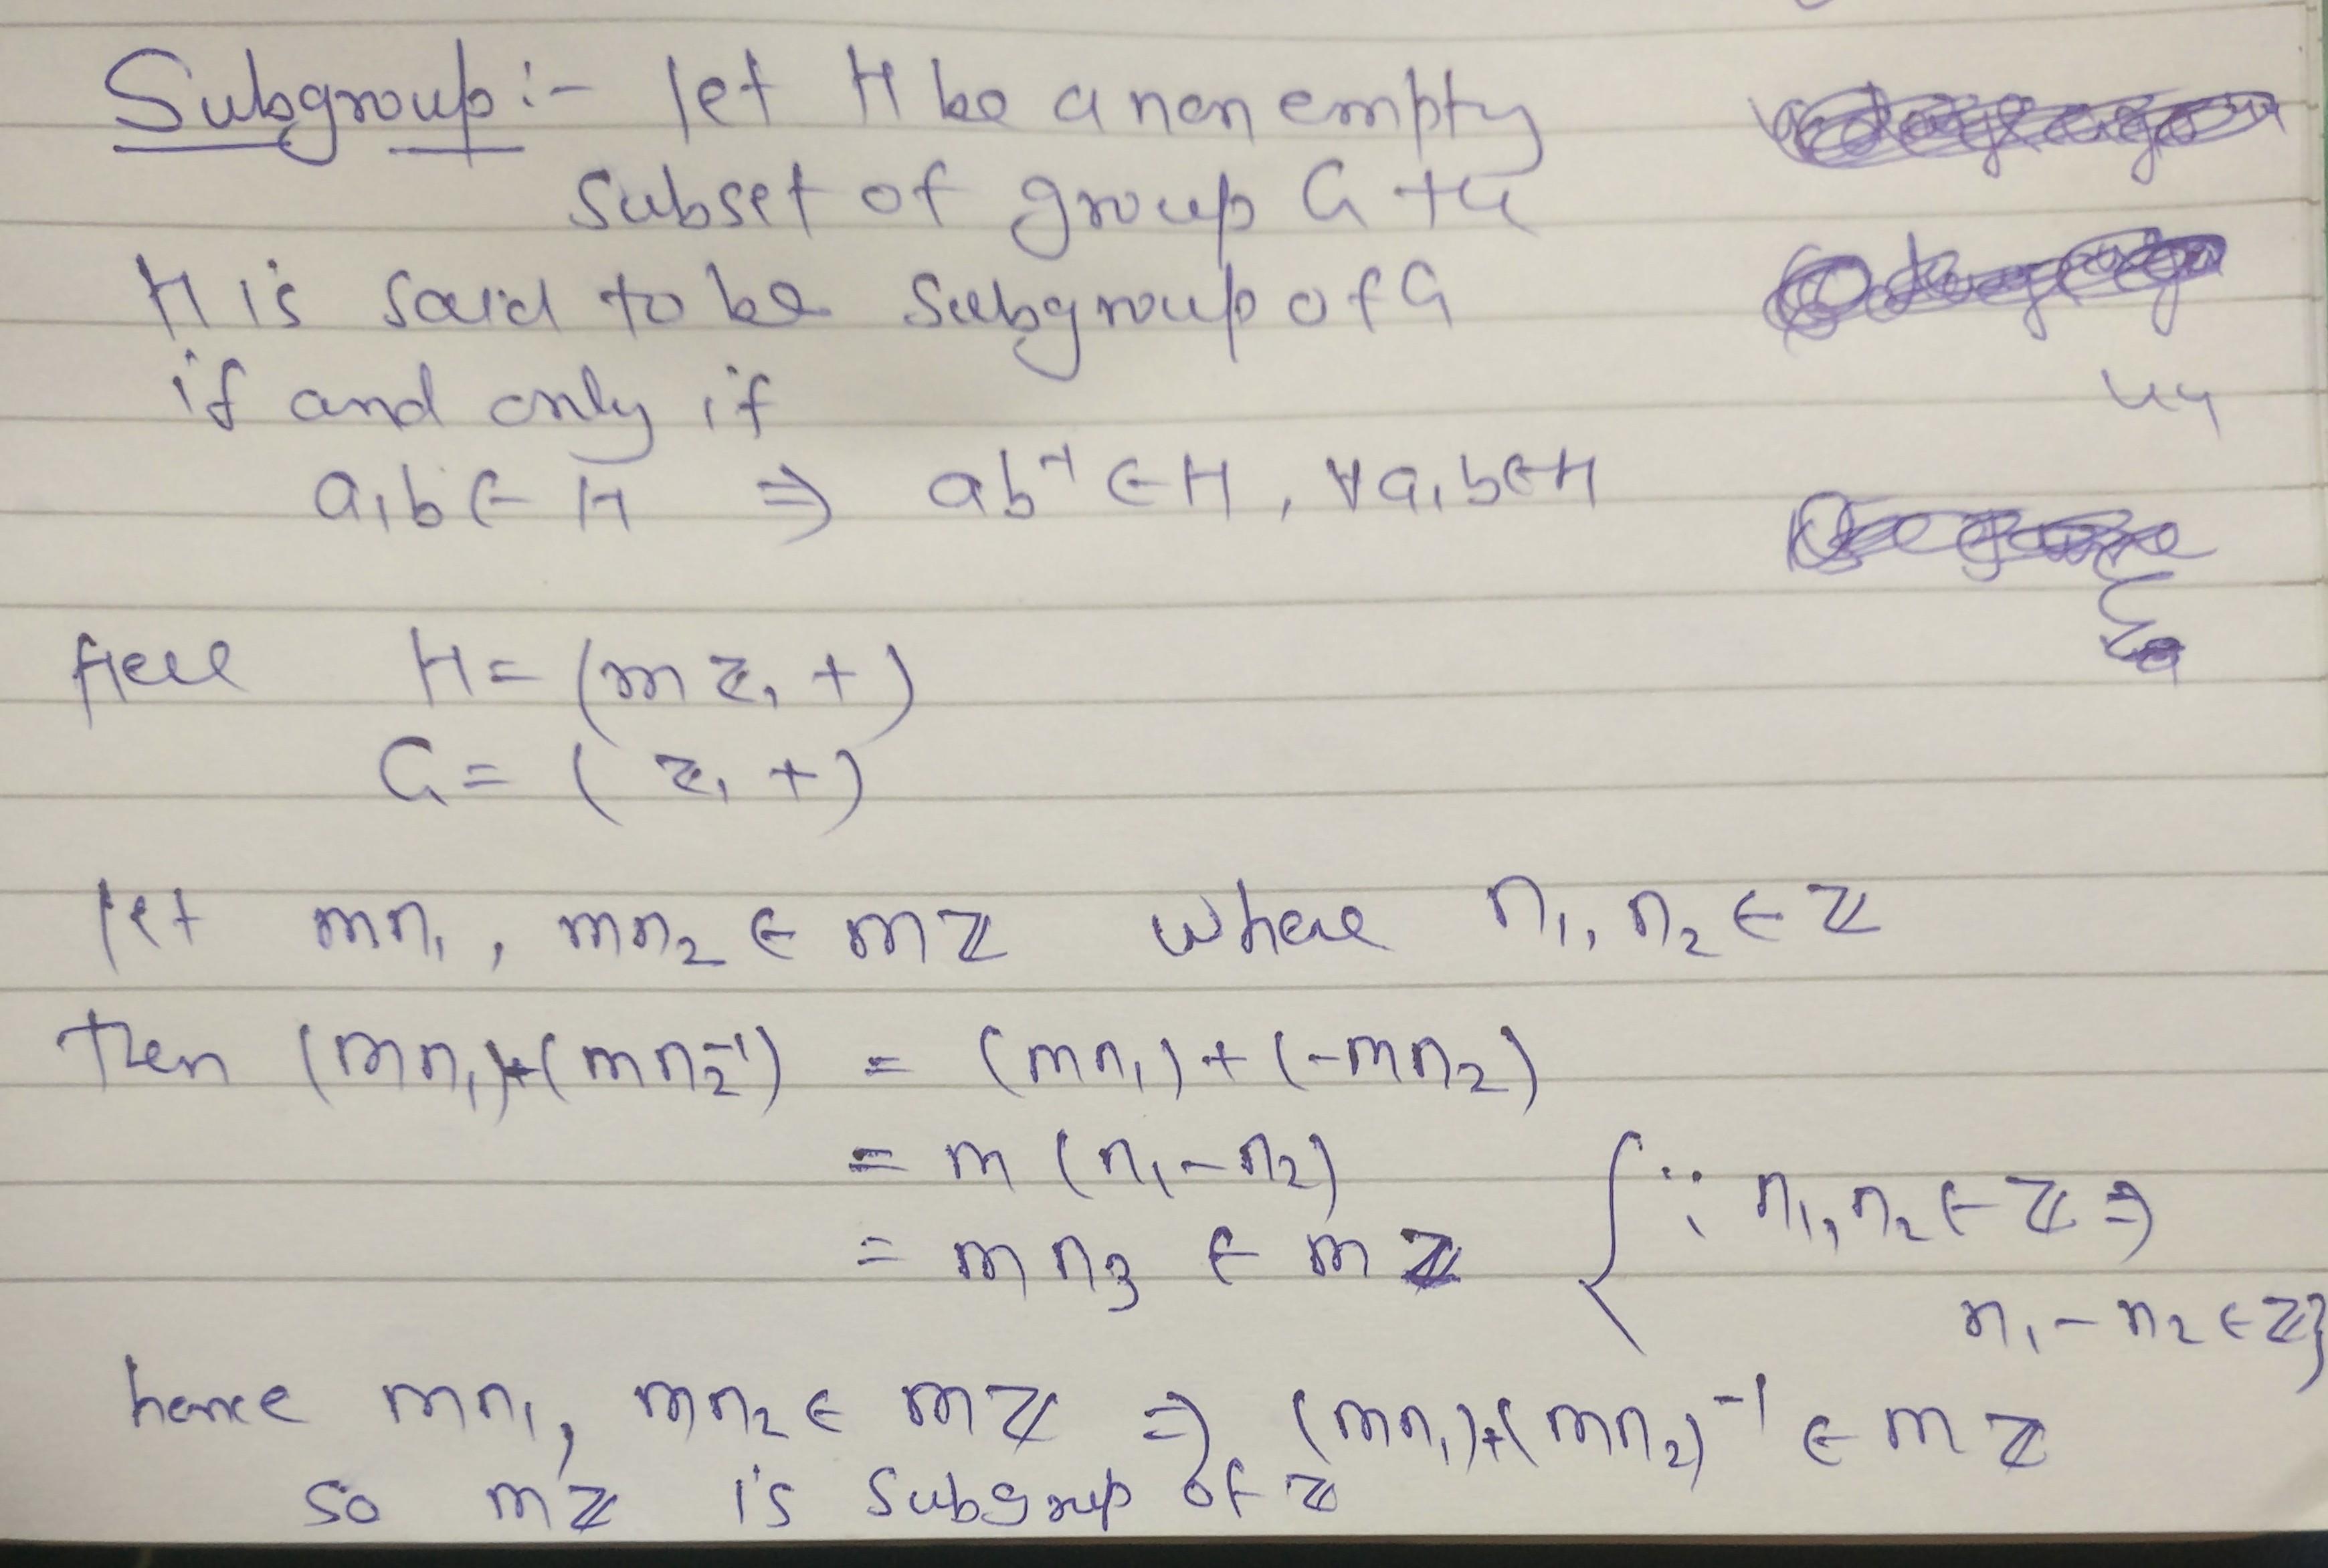 Subgroup :- let H be a non empty
subset of group G
H is said to be subgroup of G
if and only if
a, b ∈ H ⇒ ab⁻¹ ∈ H, ∀ a, b ∈ H
Here H = (mℤ, +)
G = (ℤ, +)
let mn₁, mn₂ ∈ mℤ where n₁, n₂ ∈ ℤ
then (mn₁)+(mn₂⁻¹) = (mn₁)+(-mn₂)
= m(n₁-n₂)
= mn₃ ∈ mℤ {∵ n₁, n₂ ∈ ℤ ⇒
n₁-n₂ ∈ ℤ}
hence mn₁, mn₂ ∈ mℤ ⇒ (mn₁)+(mn₂)⁻¹ ∈ mℤ
so mℤ is subgroup of ℤ